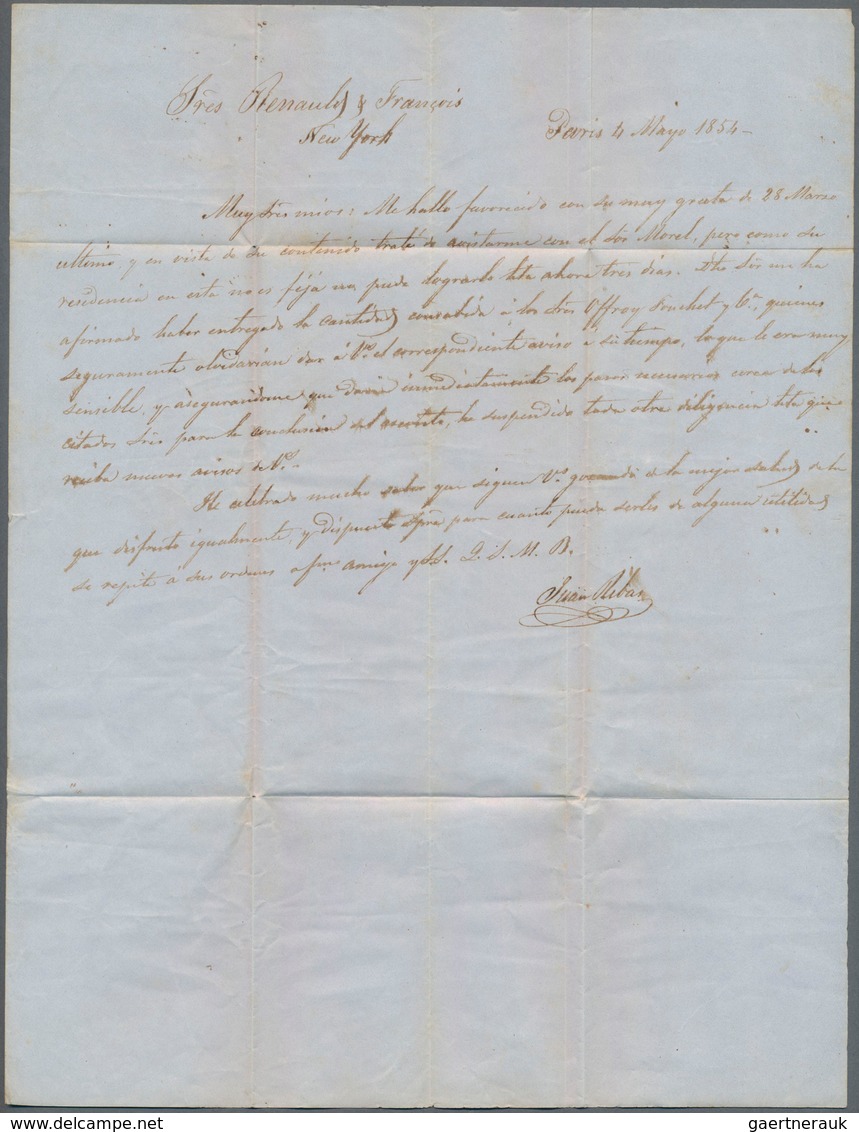 Sres Renauld & François
New York
Paris 4 Mayo 1854–
Muy Sres mios: Me hallo favorecido con su muy grata de 28 Marzo
ultimo, y en vista de su contenido traté de avistarme con el Sor Morel, pero como su
residencia en esta no es fija no pude lograrlo hta ahora tres dias. Dho Sor me ha
afirmado haber entregado la cantidad consabida á los Sres Offroy Pouchet y Ca, quienes
seguramente olvidarian dar á Vs el correspondiente aviso a su tiempo, lo que le era muy
sensible, y asegurandome que daria inmediatamente los pasos necesarios cerca de los
citados Sres para la conclusion del asunto, he suspendido toda otra diligencia hta que
reciba nuevos avisos de Vs.
He celebrado mucho saber que siguen Vs gozando de la mejor salud, de la
que disfruto igualmente, y dispuesto spre para cuanto pueda serles de alguna utilidad
se repite á sus ordenes afmo amigo y SS. Q. S. M. B.
Juan Ribas
gaertnerauk